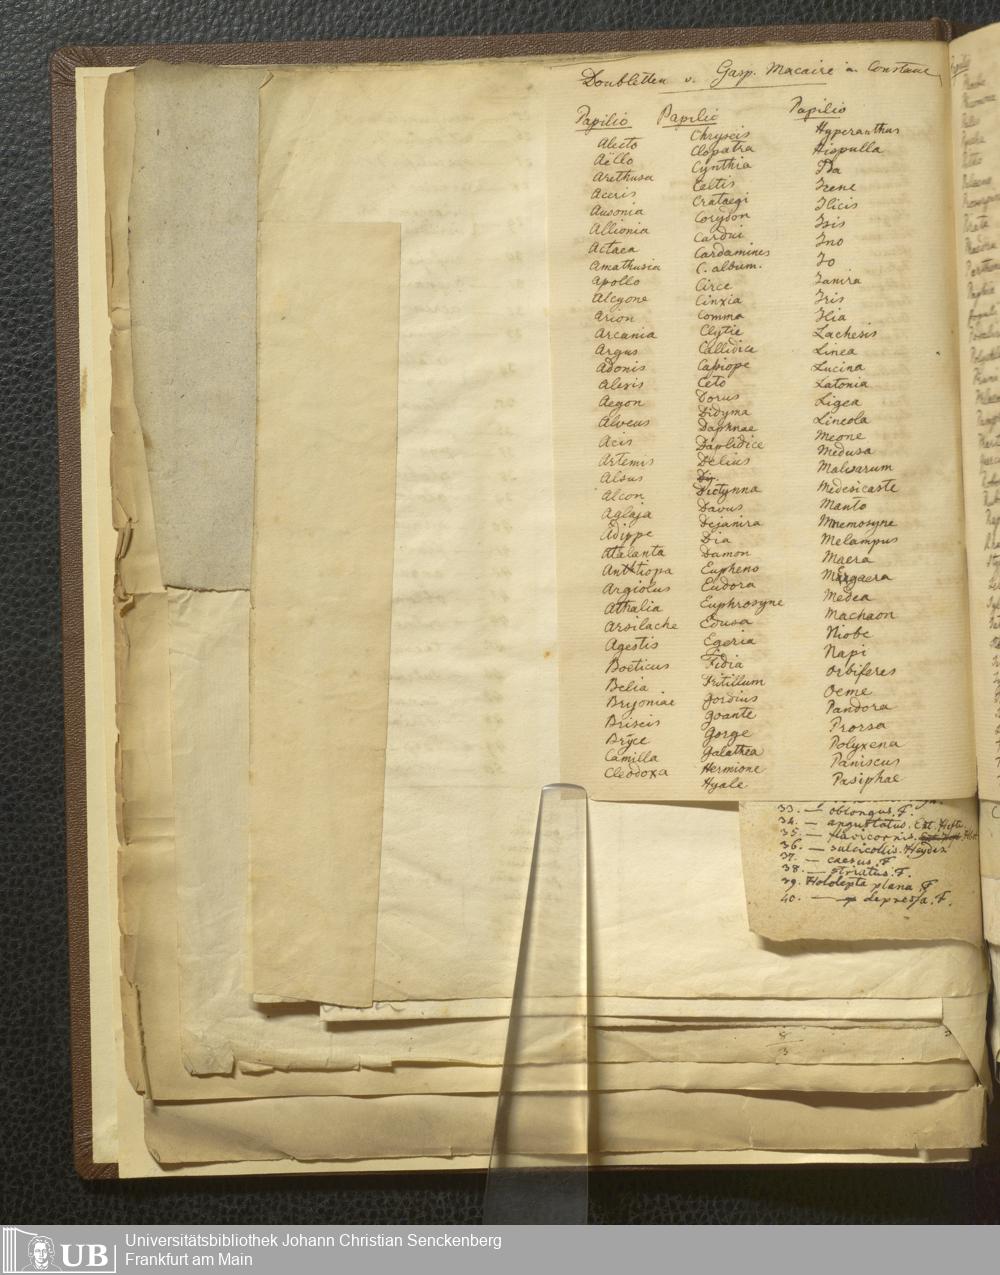 Doubletten v. Gasp. Macaire in Constanz
Papilio
Alecto
Aëllo
Arethusa
Aceris
Ausonia
Allionia
Actaea
Amathusia
Apollo
Alcyone
Arion
Arcania
Argus
Adonis
Alexis
Aegon
Alveus
Acis
Artemis
Alsus
Alcon
Aglaja
Adippe
Atalanta
Anttiopa
Argiolus
Athalia
Arsilache
Agestis
Boeticus
Belia
Bryoniae
Briseis
Bryce
Camilla
Cleodoxa
Papilio
Chryseis
Clopatra
Cynthia
Celtis
Crataegi
Corydon
Cardui
Cardamines
C. album.
Circe
Cinxia
Comma
Clytie
Callidice
Cassiope
Ceto
Dorus
Didyma
Daphnae
Daplidice
Delius
Dictynna
Davus
Dejanira
Dia
Damon
Eupheno
Eudora
Euphrosyne
Edusa
Egeria
Fidia
Fritillum
Gordius
Goante
Gorge
Galathea
Hermione
Hyale
Papilio
Hyperanthus
Hispulla
Ida
Irene
Ilicis
Isis
Ino
Io
Janira
Iris
Ilia
Lachesis
Linea
Lucina
Latonia
Ligea
Lineola
Meone
Medusa
Malvarum
Medesicaste
Manto
Mnemosyne
Melampus
Maera
Megaera
Medea
Machaon
Niobe
Napi
Orbiferes
Oeme
Pandora
Prorsa
Polyxena
Paniscus
Pasiphae
33. — oblongus. F.
34. — angustatus. Ent. Hefte.
35. — flavicornis.
36. — sulcicollis. Heyden
37. — caesus. F
38. — striatus. F.
39. Hololepta plana. F
40. — depressa. F.
UB
Universitätsbibliothek Johann Christian Senckenberg
Frankfurt am Main